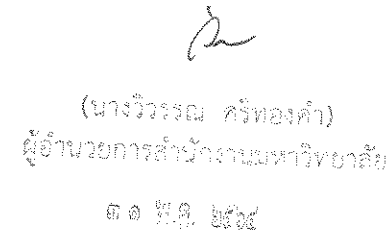 (นางวิวรรณ ศรีทองคำ)
ผู้อำนวยการสำนักงานมหาวิทยาลัย
๓๑ พ.ค. ๒๕๖๔